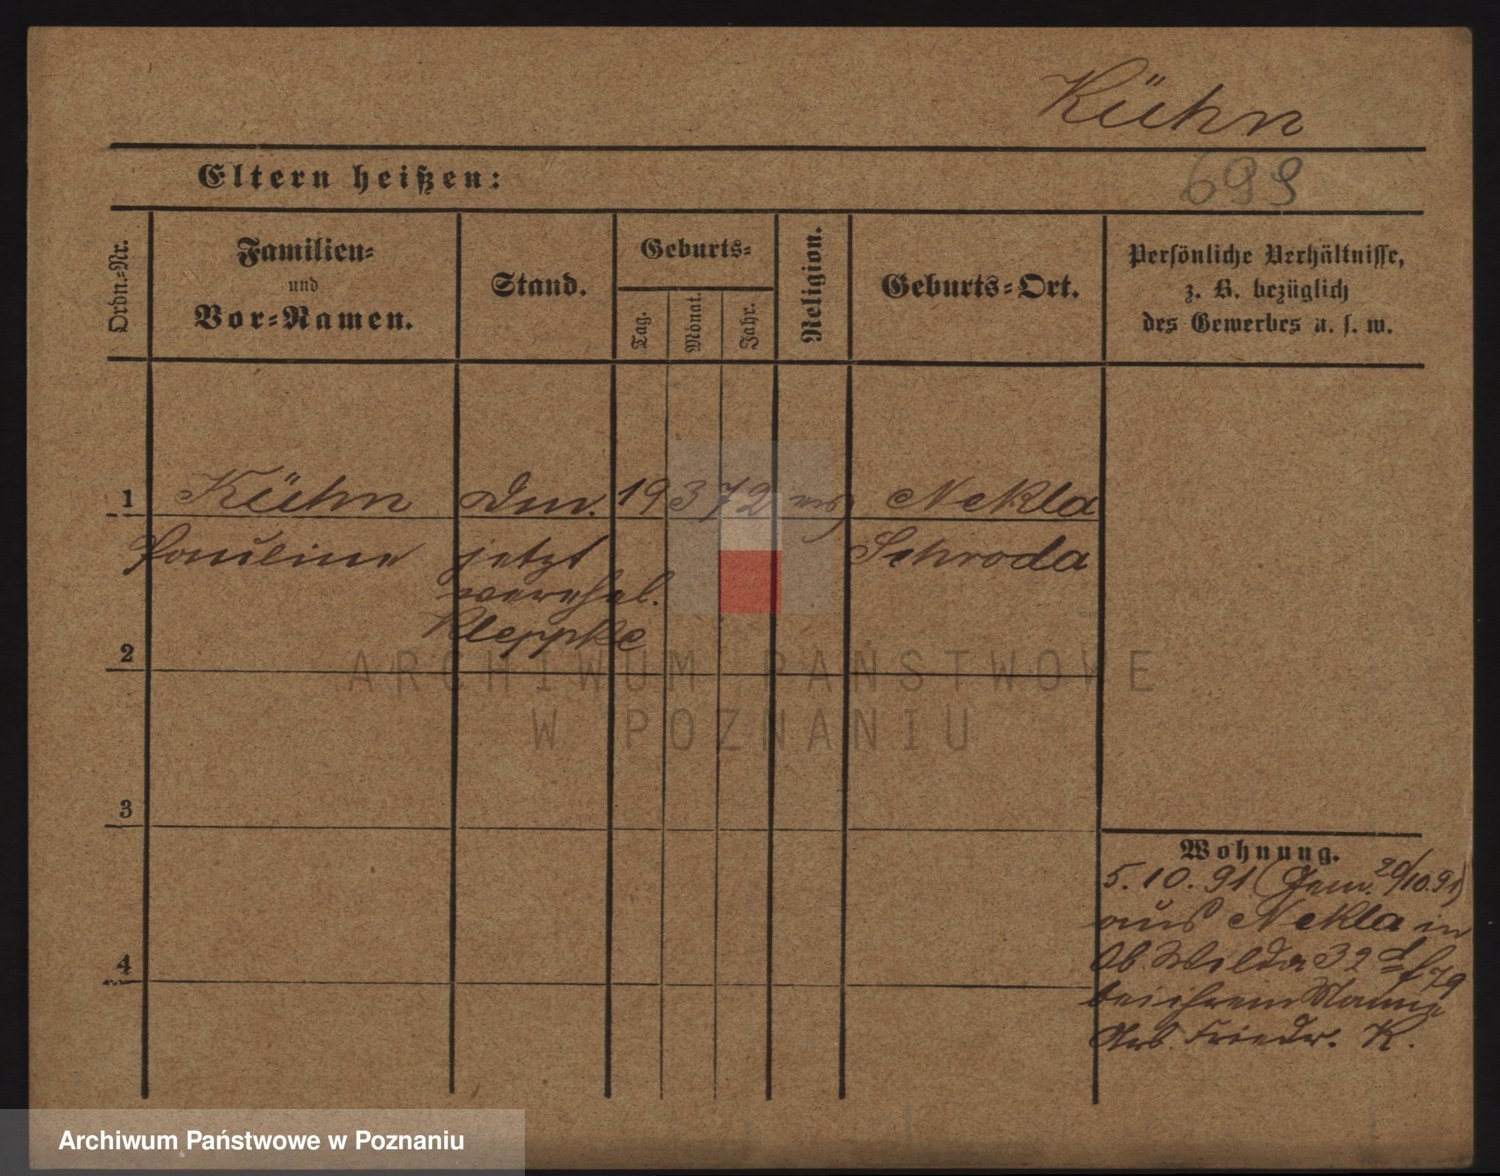 Kühn
699
Eltern heißen:
Ordn.-Nr.
Familien-
und
Vor-Namen.
Stand.
Geburts-
Tag.
Monat.
Jahr.
Religion.
Geburts-Ort.
Persönliche Verhältnisse,
z. B. bezüglich
des Gewerbes u. s. w.
1 Kühn 19 3 72 Nekla
Pauline jetzt Schroda
verehel.
Kleppke
2
3
4
Wohnung.
5.10.91 (Gem. 20/10.91)
aus Nekla in
Ob. Wilda 32
bei ihrem Manne
Arb. Friedr. K.
ARCHIWUM PAŃSTWOWE
W POZNANIU
Archiwum Państwowe w Poznaniu